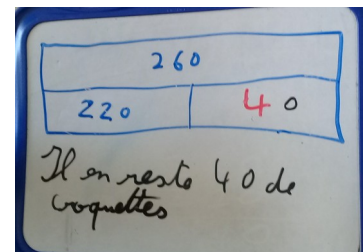 260
220 40
Il en reste 40 de
croquettes